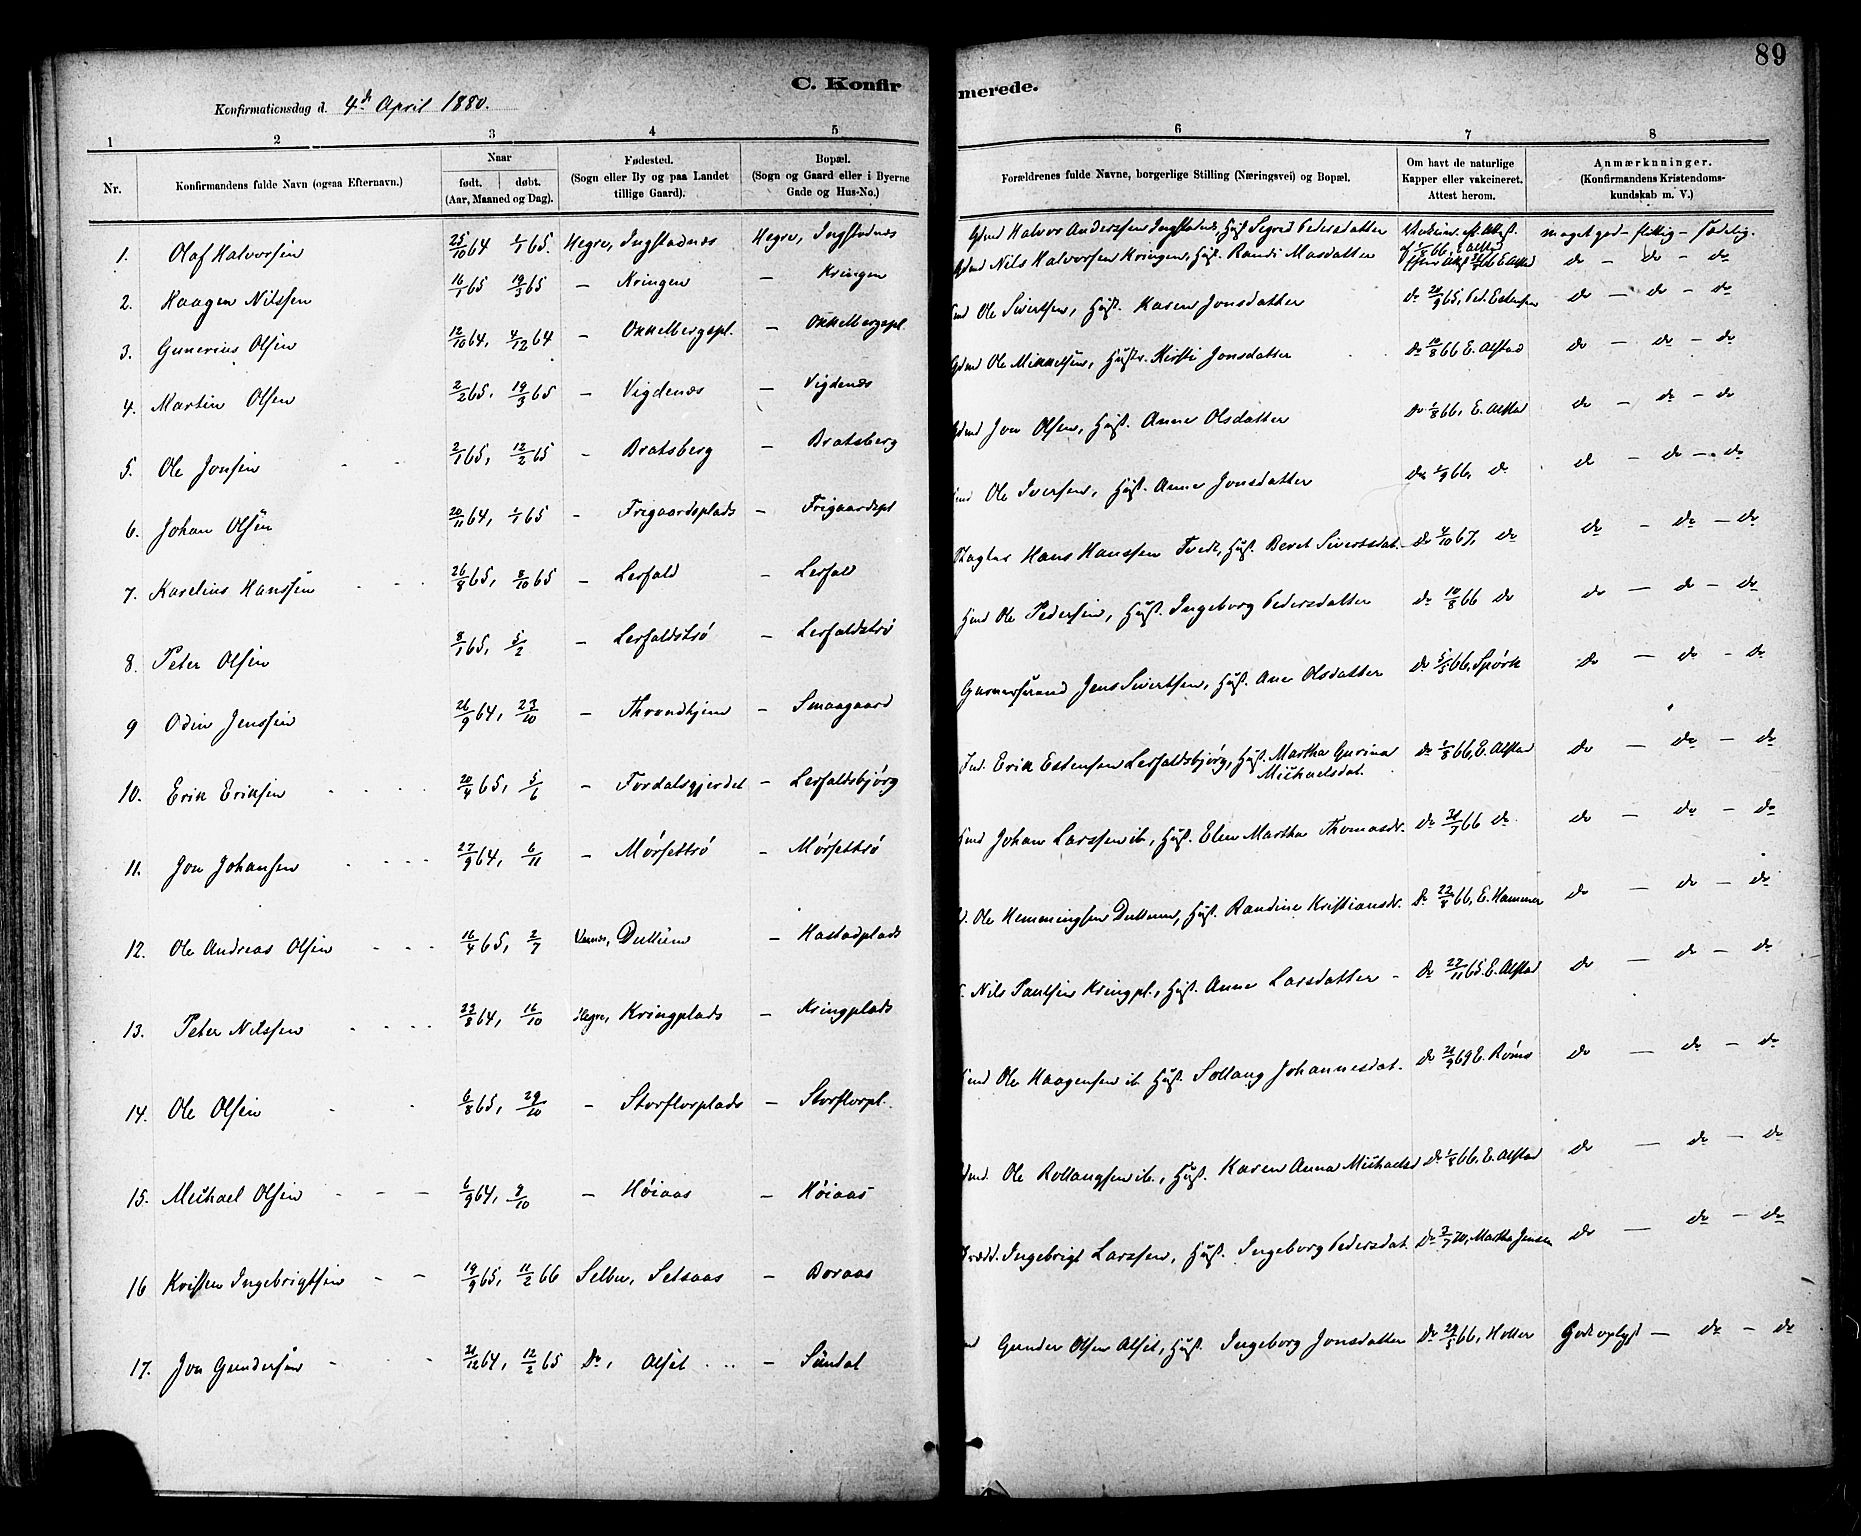 89
C. Konfirmerede.
Konfirmationsdag d. 4de April 1880.
1 2 3 4 5 6 7 8
Nr. Konfirmandens fulde Navn (ogsaa Efternavn.) Naar født. døbt. (Aar, Maaned og Dag). Fødested. (Sogn eller By og paa Landet tillige Gaard). Bopæl. (Sogn og Gaard eller i Byerne Gade og Hus-No.) Forældrenes fulde Navne, borgerlige Stilling (Næringsvei) og Bopæl. Om havt de naturlige Kopper eller vakcineret. Attest herom. Anmærkninger. (Konfirmandens Kristendomskundskab m. V.)
1. Olaf Halvorsen 25/10 64 1/1 65. Hegre, Ingstadnes Hegre, Ingstadnes Gdmd Halvor Anderssen Ingstadnes, Hust. Sigrid Pedersdatter meget god – flittig – sædelig.
2. Haagen Nilssen 16/1 65 19/3 65 – Kringen – Kringen Gdmd Nils Halvorsen Kringen, Hust. Randi Masdatter do – do – do
3. Gunerius Olsen 12/10 64, 4/12 64 – Okkelbergspl. – Okkelbergspl. Ole Sivertsen, Hust. Karen Jonsdatter do 20/9 65, Ped. Estensen do – do – do
4. Martin Olsen 2/2 65, 19/3 65 – Vigdenes – Vigdenes Gdmd Ole Mikkelsen, Hustr. Kirsti Jonsdatter do 10/8 66 E. Alstad do – do – do
5. Ole Jonsen 2/1 65, 12/2 65 – Bratsberg – Bratsberg Gdmd Jon Olsen, Hust. Anne Olsdatter do 1/8 66, E. Alstad do – do – do
6. Johan Olsen 20/11 64, 1/1 65 – Frigaardsplads – Frigaardspl Ole Iversen, Hust. Anne Jonsdatter do 1/9 66, do do – do – do
7. Karelius Hanssen 26/8 65, 8/10 65 – Lerfald – Lerfald Hans Hanssen Tvedt, Hust. Beret Sivertsdat. – do 4/10 67, do do – do – do
8. Peter Olsen 8/1 65, 5/2 – Lerfaldstrø – Lerfaldstrø Hmd Ole Pedersen, Hust. Ingeborg Pedersdatter do 10/8 66 do do – do – do
9 Odin Jenssen 26/9 64, 23/10 – Throndhjem – Smaagaard Garversvend Jens Sivertsen, Hust. Ane Olsdatter do 5/5 66, Spørk do – do – do
10. Erik Eriksen 20/4 65, 5/6 – Fordalsgjerdet – Lerfaldsbjørg Ind. Erik Estensen Lerfaldsbjørg, Hust. Martha Gurina Michaelsdat. do 1/8 66, E. Alstad do – do – do
11. Jon Johansen 27/9 64, 6/11 – Mørsettrø – Mørsettrø Hmd Johan Larssen ib, Hust. Elen Martha Thomasdr. do 30/7 66 do do – do – do
12. Ole Andreas Olsen 16/4 65, 2/7 Værnes, Dullum – Hastadplads Ole Hemmingsen Dullum, Hust. Randine Kristiansdr. do 22/8 66, E. Hammer do – do – do
13. Peter Nilssen 23/8 64, 16/10 Hegre, Kringplads – Kringplads Nils Paulsen Kringpl., Hust. Anne Larsdatter – do 22/11 65. E. Alstad do – do – do
14. Ole Olsen 6/8 65, 29/10 – Storflorplads – Storflorpl. Ole Haagensen ib Hust. Sollaug Johannesdat. do 21/9 69 E. Røms do – do – do
15. Michael Olsen 6/9 64, 9/10 – Høiaas – Høiaas Ole Rollaugsen ib., Hust. Karen Anna Michaelsd do 1/8 66, E. Alstad do – do – do
16 Kristen Ingebrigtsen 19/9 65, 11/2 66 Selbu, Selsaas – Boraas Ingebrigt Larssen, Hust. Ingeborg Pedersdat. do 2/7 70, Martha Jensen do – do – do
17. Jon Gundersen 21/12 64, 12/2 65 Do, Alset – Sundal Gunder Olsen Alset, Hust. Ingeborg Jonsdatter do 29/5 66, Holter Godt oplyst – do – do